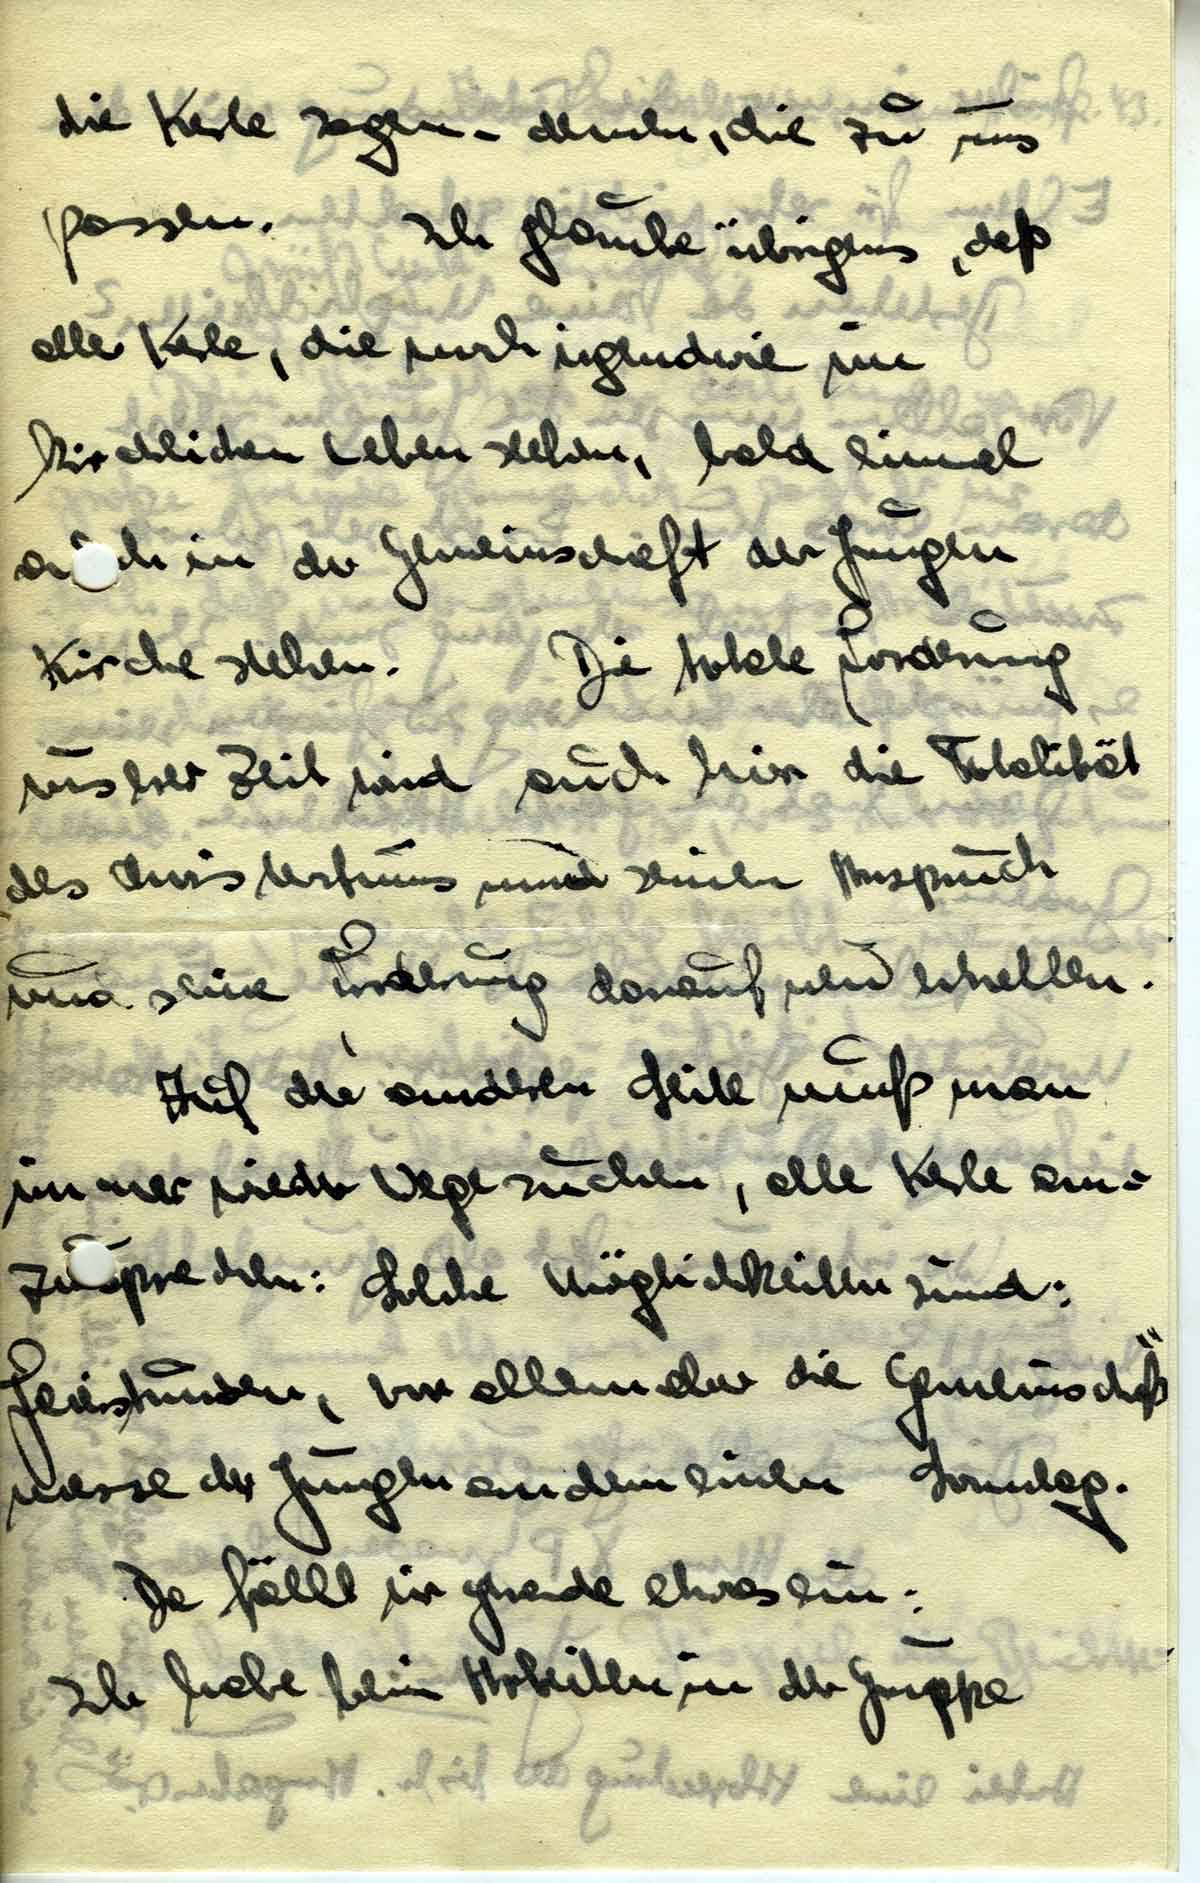 die Kerle sagen - denen, die zu uns
passen. Ich glaube übrigens, daß
alle Kerle, die noch irgendwie im
kirchlichen Leben stehen, bald einmal
auch in der Gemeinschaft der Jungen
Kirche stehen. Die totale Forderung
unsrer Zeit wird auch hier die Totalität
des Christentums und seinen Anspruch
und seine Forderung darauf neu erhellen.
Auf der anderen Seite muß man
immer wieder Wege suchen, alle Kerle an-
zusprechen: Solche Möglichkeiten sind:
Feierstunden, vor allem aber die Gemeinschafts
messe der Jungen an dem einen Sonntag.
Da fällt mir gerade etwas ein:
Ich habe beim Arbeiten in der Gruppe